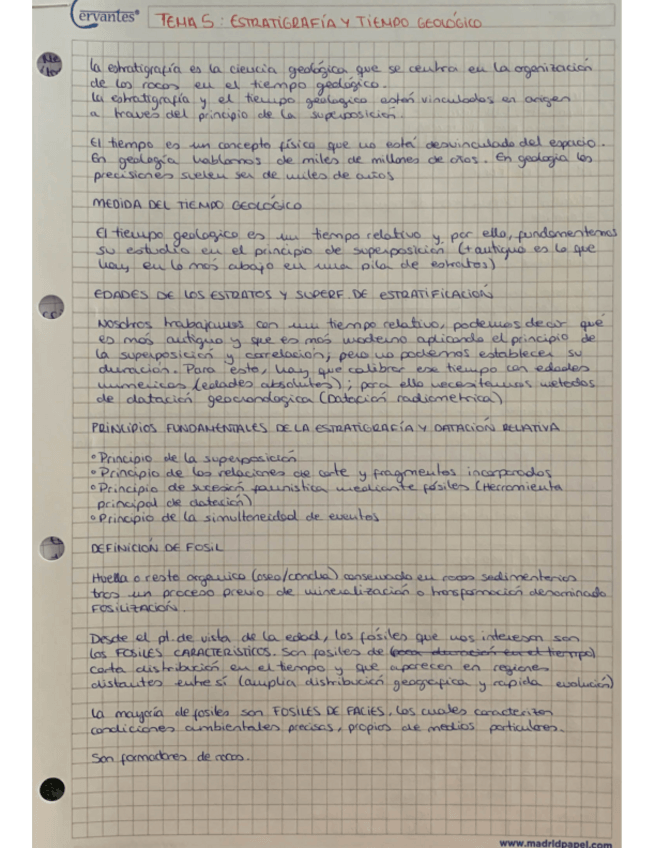 Cervantes®
TEMA 5: ESTRATIGRAFÍA Y TIEMPO GEOLÓGICO
La estratigrafía es la ciencia geológica que se centra en la organización
de las rocas en el tiempo geológico.
La estratigrafía y el tiempo geologico están vinculados en origen
a través del principio de la superposición.
El tiempo es un concepto físico que no está desvinculado del espacio.
En geología hablamos de miles de millones de años. En geología las
precisiones suelen ser de miles de años
MEDIDA DEL TIEMPO GEOLÓGICO
El tiempo geologico es un tiempo relativo y, por ello, fundamentamos
su estudio en el principio de superposición (+ antiguo es lo que
hay en lo más abajo en una pila de estratos)
EDADES DE LOS ESTRATOS Y SUPERF. DE ESTRATIFICACIÓN
Nosotros trabajamos con un tiempo relativo, podemos decir que
es más antiguo y que es más moderno aplicando el principio de
la superposición y correlación, pero no podemos establecer su
duración. Para esto, hay que calibrar ese tiempo con edades
numéricas (edades absolutas); para ello necesitamos metodos
de datación geocronologica (Datación radiometrica)
PRINCIPIOS FUNDAMENTALES DE LA ESTRATIGRAFÍA Y DATACIÓN RELATIVA
• Principio de la superposición
• Principio de las relaciones de corte y fragmentos incorporados
• Principio de sucesión faunistica mediante fósiles (Herramienta
principal de datación)
• Principio de la simultaneidad de eventos
DEFINICIÓN DE FOSIL
Huella o resto orgánico (oseo/concha) conservado en rocas sedimentarias
tras un proceso previo de mineralización o transformación denominado
FOSILIZACIÓN.
Desde el pt. de vista de la edad, los fósiles que nos interesan son
los FOSILES CARACTERÍSTICOS. Son fosiles de (poca duración en el tiempo)
corta distribución en el tiempo y que aparecen en regiones
distantes entre sí (amplia distribución geográfica y rapida evolución)
La mayoría de fosiles son FOSILES DE FACIES, los cuales caracterizan
condiciones ambientales precisas, propias de medios particulares.
Son formadores de rocas.
www.madridpapel.com